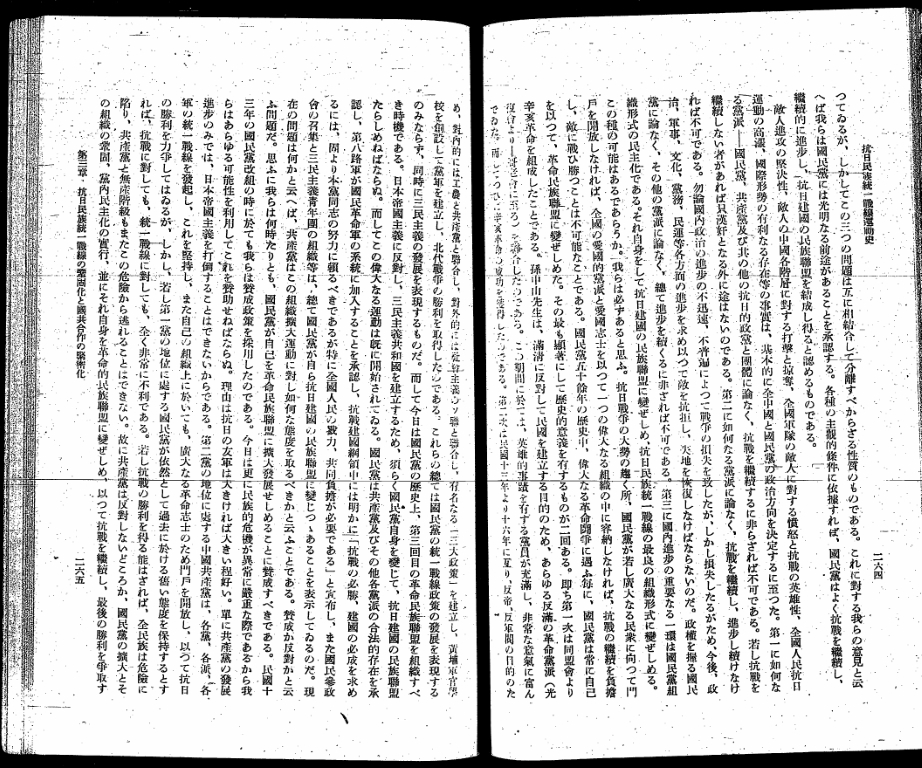 抗日民族統一戰線運動史
二六四
つてゐるが、しかしてこの三つの問題は互に相結合して分離すべからざる性質のものである。これに對する我らの意見と云
へば我らは國民黨には光明なる前途があることを承認する。各種の主觀的條件に依據すれば、國民黨はよく抗戰を繼續し、
繼續的に進步し、抗日建國の民族聯盟を結成し得ると認めるものである。
敵人進攻の堅決性、敵人の中國各階層に對する打擊と掠奪、全國軍隊の敵人に對する憤怒と抗戰の英雄性、全國人民抗日
運動の高漲、國際形勢の有利なる存在等の事實は、基本的に全中國と國民黨の政治方向を決定するに至つた。第一に如何な
る黨派―國民黨、共產黨及び其の他の抗日的政黨と團體に論なく、抗戰を繼續するに非らざれば不可である。若し抗戰を
繼續しない者があれば只漢奸となる外に途はないのである。第二に如何なる黨派に論なく、抗戰を繼續し、進步し續けなけ
れば不可である。勿論國內政治の進步の不迅速、不普遍によつて戰爭の損失を致したが、しかし損失したるがため、今後、政
治、軍事、文化、黨務、民運等各方面の進步を求め以つて敵を抗拒し、失地を恢復しなければならないのだ。政權を握る國民
黨に論なく、その他の黨派に論なく、總て進步を續くるに非ざれば不可である。第三に國內進步の重要なる一環は國民黨組
織形式の民主化である。それ自身をして抗日建國の民族聯盟に變ぜしめ、抗日民族統一戰線の最良の組織形式に變ぜしめる。
この種の可能はあるであらうか。我らは必ずあると思ふ。抗日戰爭の大勢の趨く所、國民黨が若し廣大なる民衆に向つて門
戶を開放しなければ、全國の愛國的黨派と愛國志士を以つて一つの偉大なる組織の中に容納しなければ、抗戰の繼續を負擔
し、敵に戰ひ勝つことは不可能なことである。國民黨五十餘年の歷史中、偉大なる革命鬪爭に遇ふ每に、國民黨は常に自己
を以つて、革命民族聯盟に變ぜしめた。その最も顯著にして歷史的意義を有するものが二回ある。即ち第一次は同盟會より
辛亥革命を組成したことである。孫中山先生は、滿淸に反對して民國を建立する目的のため、あらゆる反滿の革命黨派（光
この期間に於ては、英雄的事蹟を有する黨員が充滿し、非常な意氣に富ん
第二次は民國十三年より十六年に亙り、反帝、反軍閥の目的のた
め、對內的には工農と共產黨と聯合し、對外的には
聯と聯合し、有名なる「三大政策」を建立し、黃埔軍官學
校を創設して黨軍を建立し、北伐戰爭の勝利を取得したのである。これらの總ては國民黨の統一戰線政策の發展を表現する
のみならず、同時に三民主義の發展を表現するものだ。而して今日は國民黨の歷史上、第三回目の革命民族聯盟を組織すべ
き時機である。日本帝國主義に反對し、三民主義共和國を建立するため、須らく國民黨自身を變じて、抗日建國の民族聯盟
たらしめねばならぬ。而してこの偉大なる運動は旣に開始されてゐる。國民黨は共產黨及びその他各黨派の合法的存在を承
認し、第八路軍が國民革命軍の系統に加入することを承認し、抗戰建國綱領中には明かに「抗戰の必勝、建國の必成を求め
るには、固より本黨同志の努力に賴るべきであるが特に全國人民の戮力、共同負擔が必要である」と宣布し、また國民參政
會の召集と三民主義靑年團の組織等は、總て國民黨が自ら抗日建國の民族聯盟に變じつゝあることを表示してゐるのだ。現
在の問題は何かと云へば、共產黨はこの組織擴大運動に對し、如何な態度を取るべきかと云ふことである。贊成か反對かと云
ふ問題だ。思ふに我らは何時たりとも、國民黨が自己を革命民族聯盟に擴大發展せしめることに贊成すべきである。民國十
三年の國民黨改組の時に於ても我らは贊成政策を採用したのである。今日は更に民族的危機が異常に嚴重な際であるから我
らはあらゆる可能性を利用してこれを贊助せねばならぬ。理由は抗日の友軍は大きければ大きい程好い。單に共產黨の發展
進步のみでは、日本帝國主義を打倒することはできないからである。第二黨の地位に處する中國共產黨は、各黨、各派、各
軍の統一戰線を發起し、これを堅持し、また自己の組織上に於いても、廣大なる革命志士のため門戶を開放し、以つて抗日
の勝利を力爭してはゐるが、しかし、若し第一黨の地位に處する國民黨が依然として過去に於ける舊い態度を保持するとす
れば、抗戰に對しても、統一戰線に對しても、全く非常に不利である。若し抗戰の勝利を得る能はざれば、全民族は危險に
陷り、共產黨と無產階級もまたこの危險から逃れることはできない。故に共產黨は反對しないどころか、國民黨の擴大とそ
の組織の鞏固、黨內民主化の實行、並にそれ自身を革命的民族聯盟に變ぜしめ、以つて抗戰を繼續し、最後の勝利を爭取す
第三章　抗日民族統一戰線の鞏固化と國共合作の緊密化
二六五